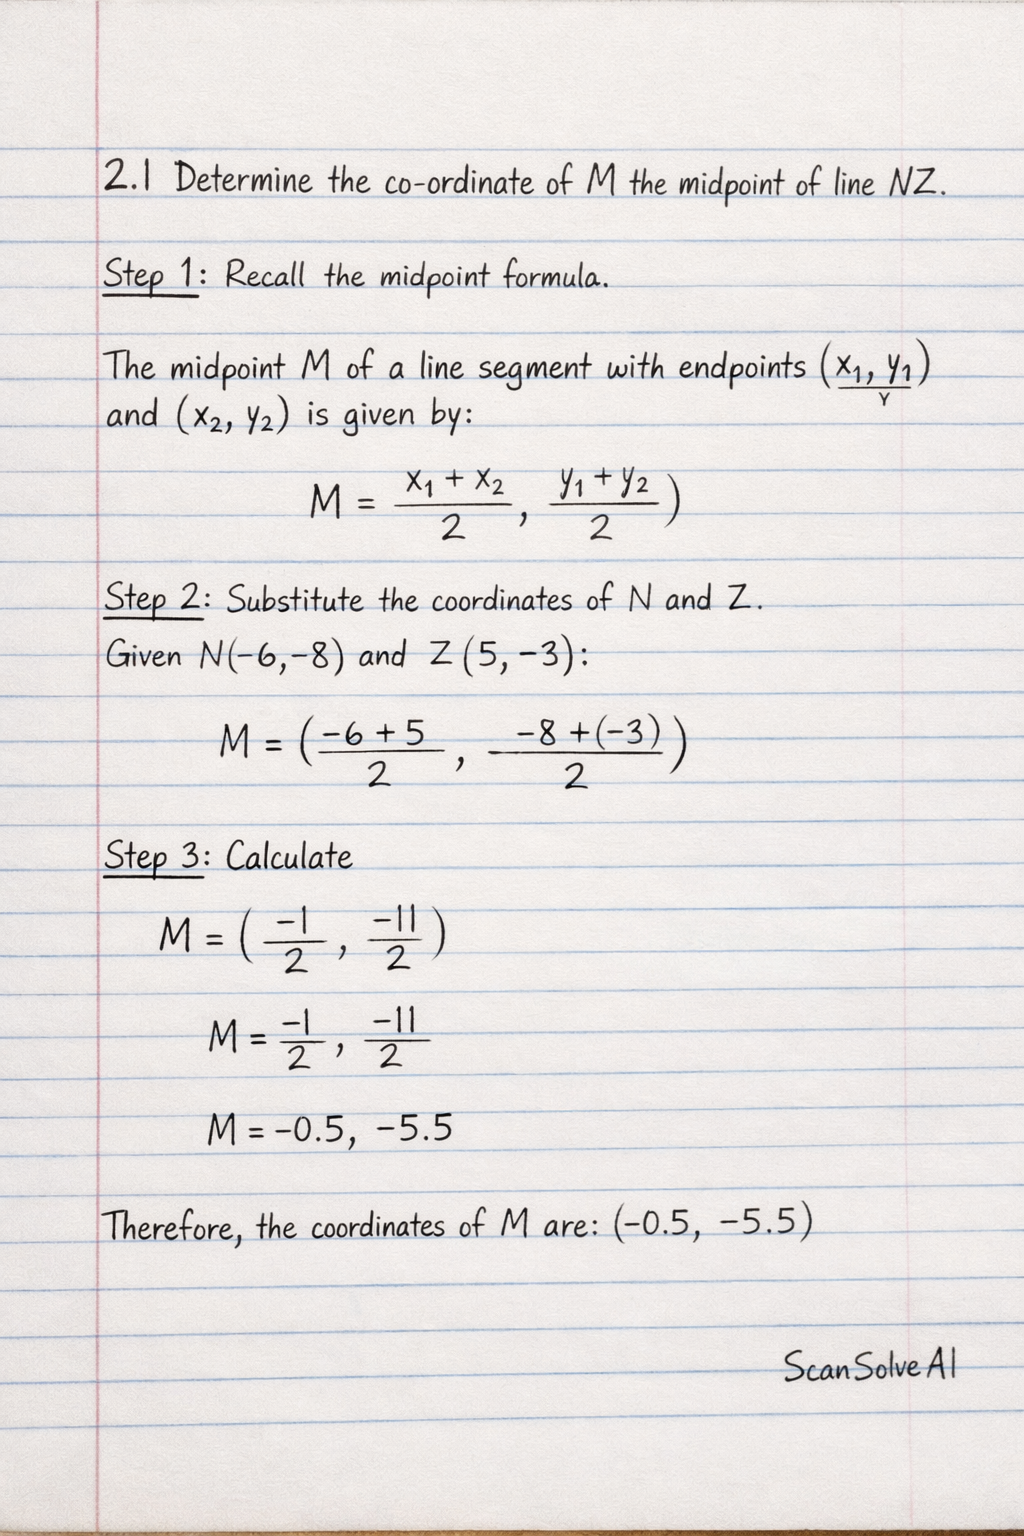 2.1 Determine the co-ordinate of M the midpoint of line NZ.
Step 1: Recall the midpoint formula.
The midpoint M of a line segment with endpoints (x₁, y₁)
Y
and (x₂, y₂) is given by:
M = x₁ + x₂ / 2 , y₁ + y₂ / 2 )
Step 2: Substitute the coordinates of N and Z.
Given N(-6,-8) and Z(5, -3):
M = ( -6 + 5 / 2 , -8 +(-3) / 2 )
Step 3: Calculate
M = ( -1 / 2 , -11 / 2 )
M = -1 / 2 , -11 / 2
M = -0.5, -5.5
Therefore, the coordinates of M are: (-0.5, -5.5)
ScanSolve AI